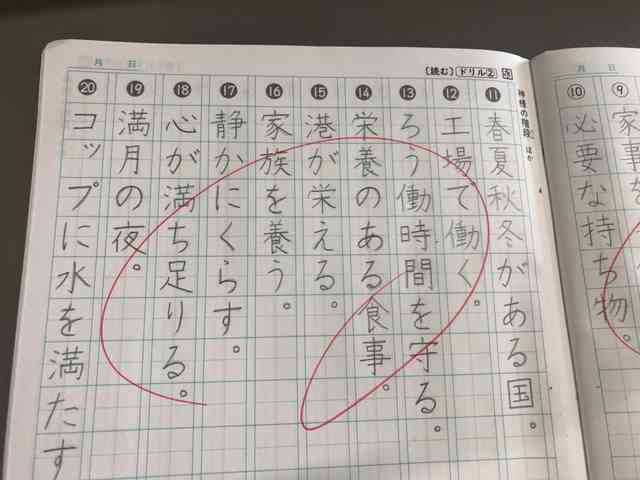 月 日
⑨家事を
⑩必要な持ち物。
月 日
(読む) ドリル②
神様の階段 ほか
⑪春夏秋冬がある国。
⑫工場で働く。
⑬ろう働時間を守る。
⑭栄養のある食事。
⑮港が栄える。
⑯家族を養う。
⑰静かにくらす。
⑱心が満ち足りる。
⑲満月の夜。
⑳コップに水を満たす